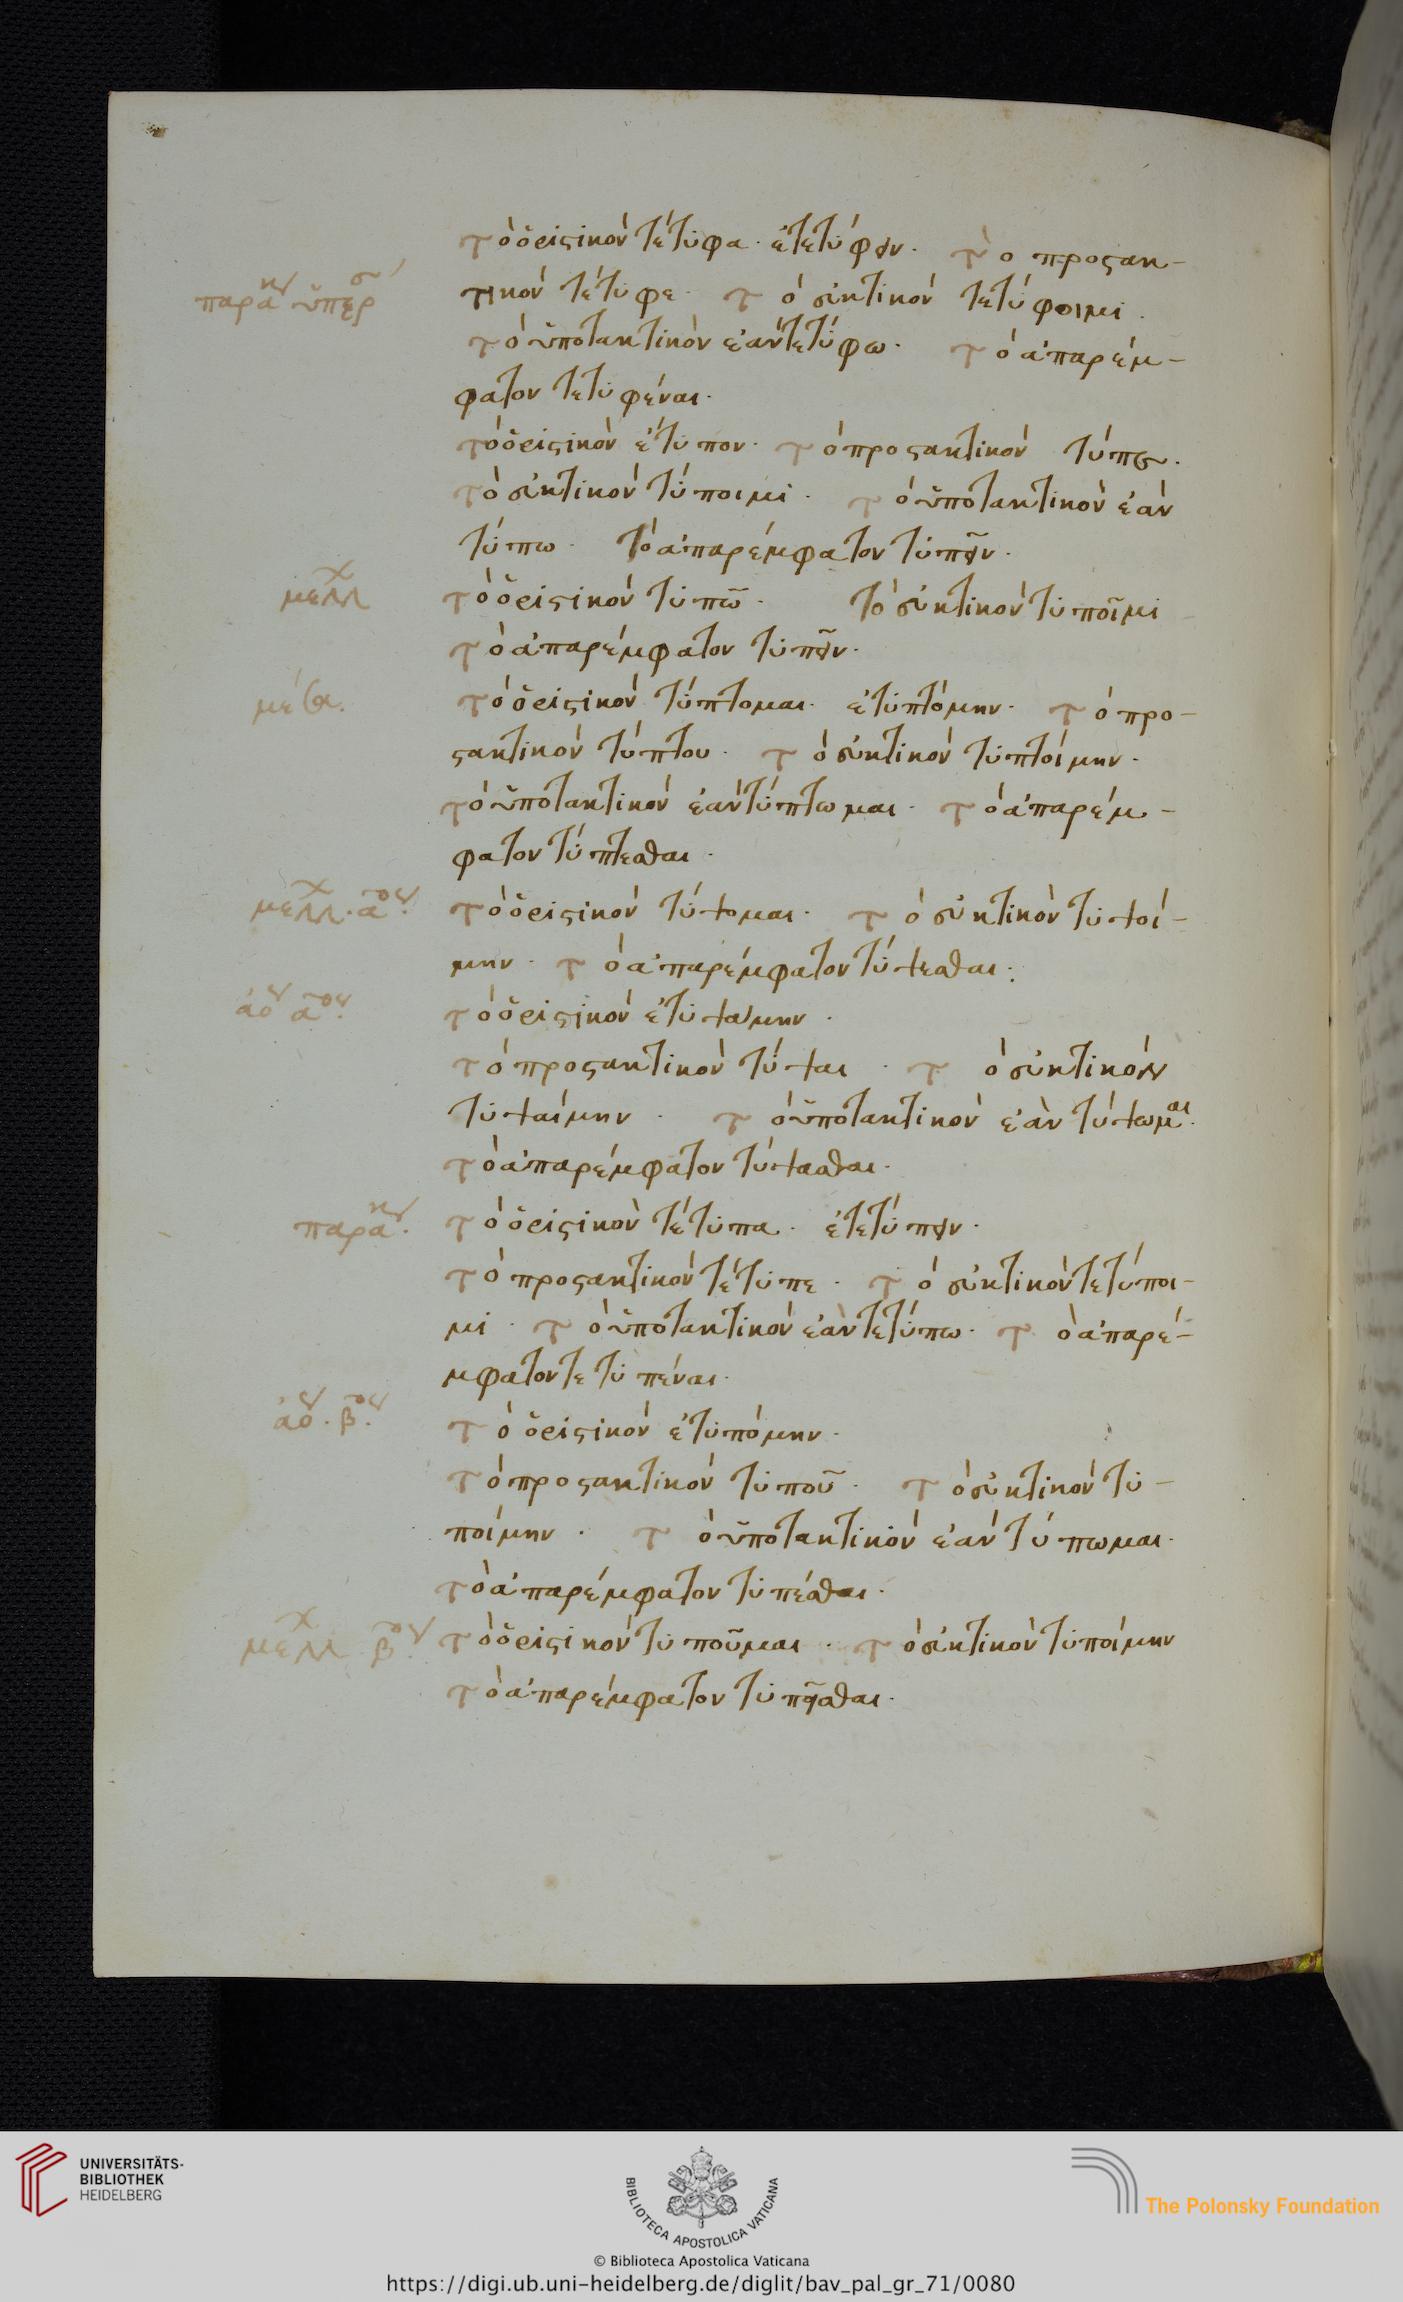 τὸ ὁριστικὸν τέτυφα· ἐτετύφειν· τὸ προστακ-
παρακ ὑπερσ
τικὸν τέτυφε· τὸ εὐκτικὸν τετύφοιμι·
τὸ ὑποτακτικὸν ἐὰν τετύφω· τὸ ἀπαρέμ-
φατον τετυφέναι·
τὸ ὁριστικὸν ἔτυπον· τὸ προστακτικὸν τύπε·
τὸ εὐκτικὸν τύποιμι· τὸ ὑποτακτικὸν ἐὰν
τύπω· τὸ ἀπαρέμφατον τυπεῖν·
μελλ
τὸ ὁριστικὸν τυπῶ· τὸ εὐκτικὸν τυποῖμι
τὸ ἀπαρέμφατον τυπεῖν·
μέσα.
τὸ ὁριστικὸν τύπτομαι· ἐτυπτόμην· τὸ προ-
στακτικὸν τύπτου· τὸ εὐκτικὸν τυπτοίμην·
τὸ ὑποτακτικὸν ἐὰν τύπτωμαι· τὸ ἀπαρέμ-
φατον τύπτεσθαι·
μελλ· αος.
τὸ ὁριστικὸν τύψομαι· τὸ εὐκτικὸν τυψοί-
μην· τὸ ἀπαρέμφατον τύψεσθαι:
ἀό αος.
τὸ ὁριστικὸν ἐτυψάμην·
τὸ προστακτικὸν τύψαι· τὸ εὐκτικὸν
τυψαίμην· τὸ ὑποτακτικὸν ἐὰν τύψωμαι·
τὸ ἀπαρέμφατον τύψασθαι·
παρακ.
τὸ ὁριστικὸν τέτυπα· ἐτετύπειν·
τὸ προστακτικὸν τέτυπε· τὸ εὐκτικὸν τετύποι-
μι· τὸ ὑποτακτικὸν ἐὰν τετύπω· τὸ ἀπαρέ-
μφατον τετυπέναι·
ἀό· βος.
τὸ ὁριστικὸν ἐτυπόμην·
τὸ προστακτικὸν τυποῦ· τὸ εὐκτικὸν τυ-
ποίμην· τὸ ὑποτακτικὸν ἐὰν τύπωμαι·
τὸ ἀπαρέμφατον τυπέσθαι·
μελλ βος.
τὸ ὁριστικὸν τυποῦμαι· τὸ εὐκτικὸν τυποίμην
τὸ ἀπαρέμφατον τυπεῖσθαι·
UNIVERSITÄTS-
BIBLIOTHEK
HEIDELBERG
BIBLIOTECA APOSTOLICA VATICANA
The Polonsky Foundation
© Biblioteca Apostolica Vaticana
https://digi.ub.uni-heidelberg.de/diglit/bav_pal_gr_71/0080